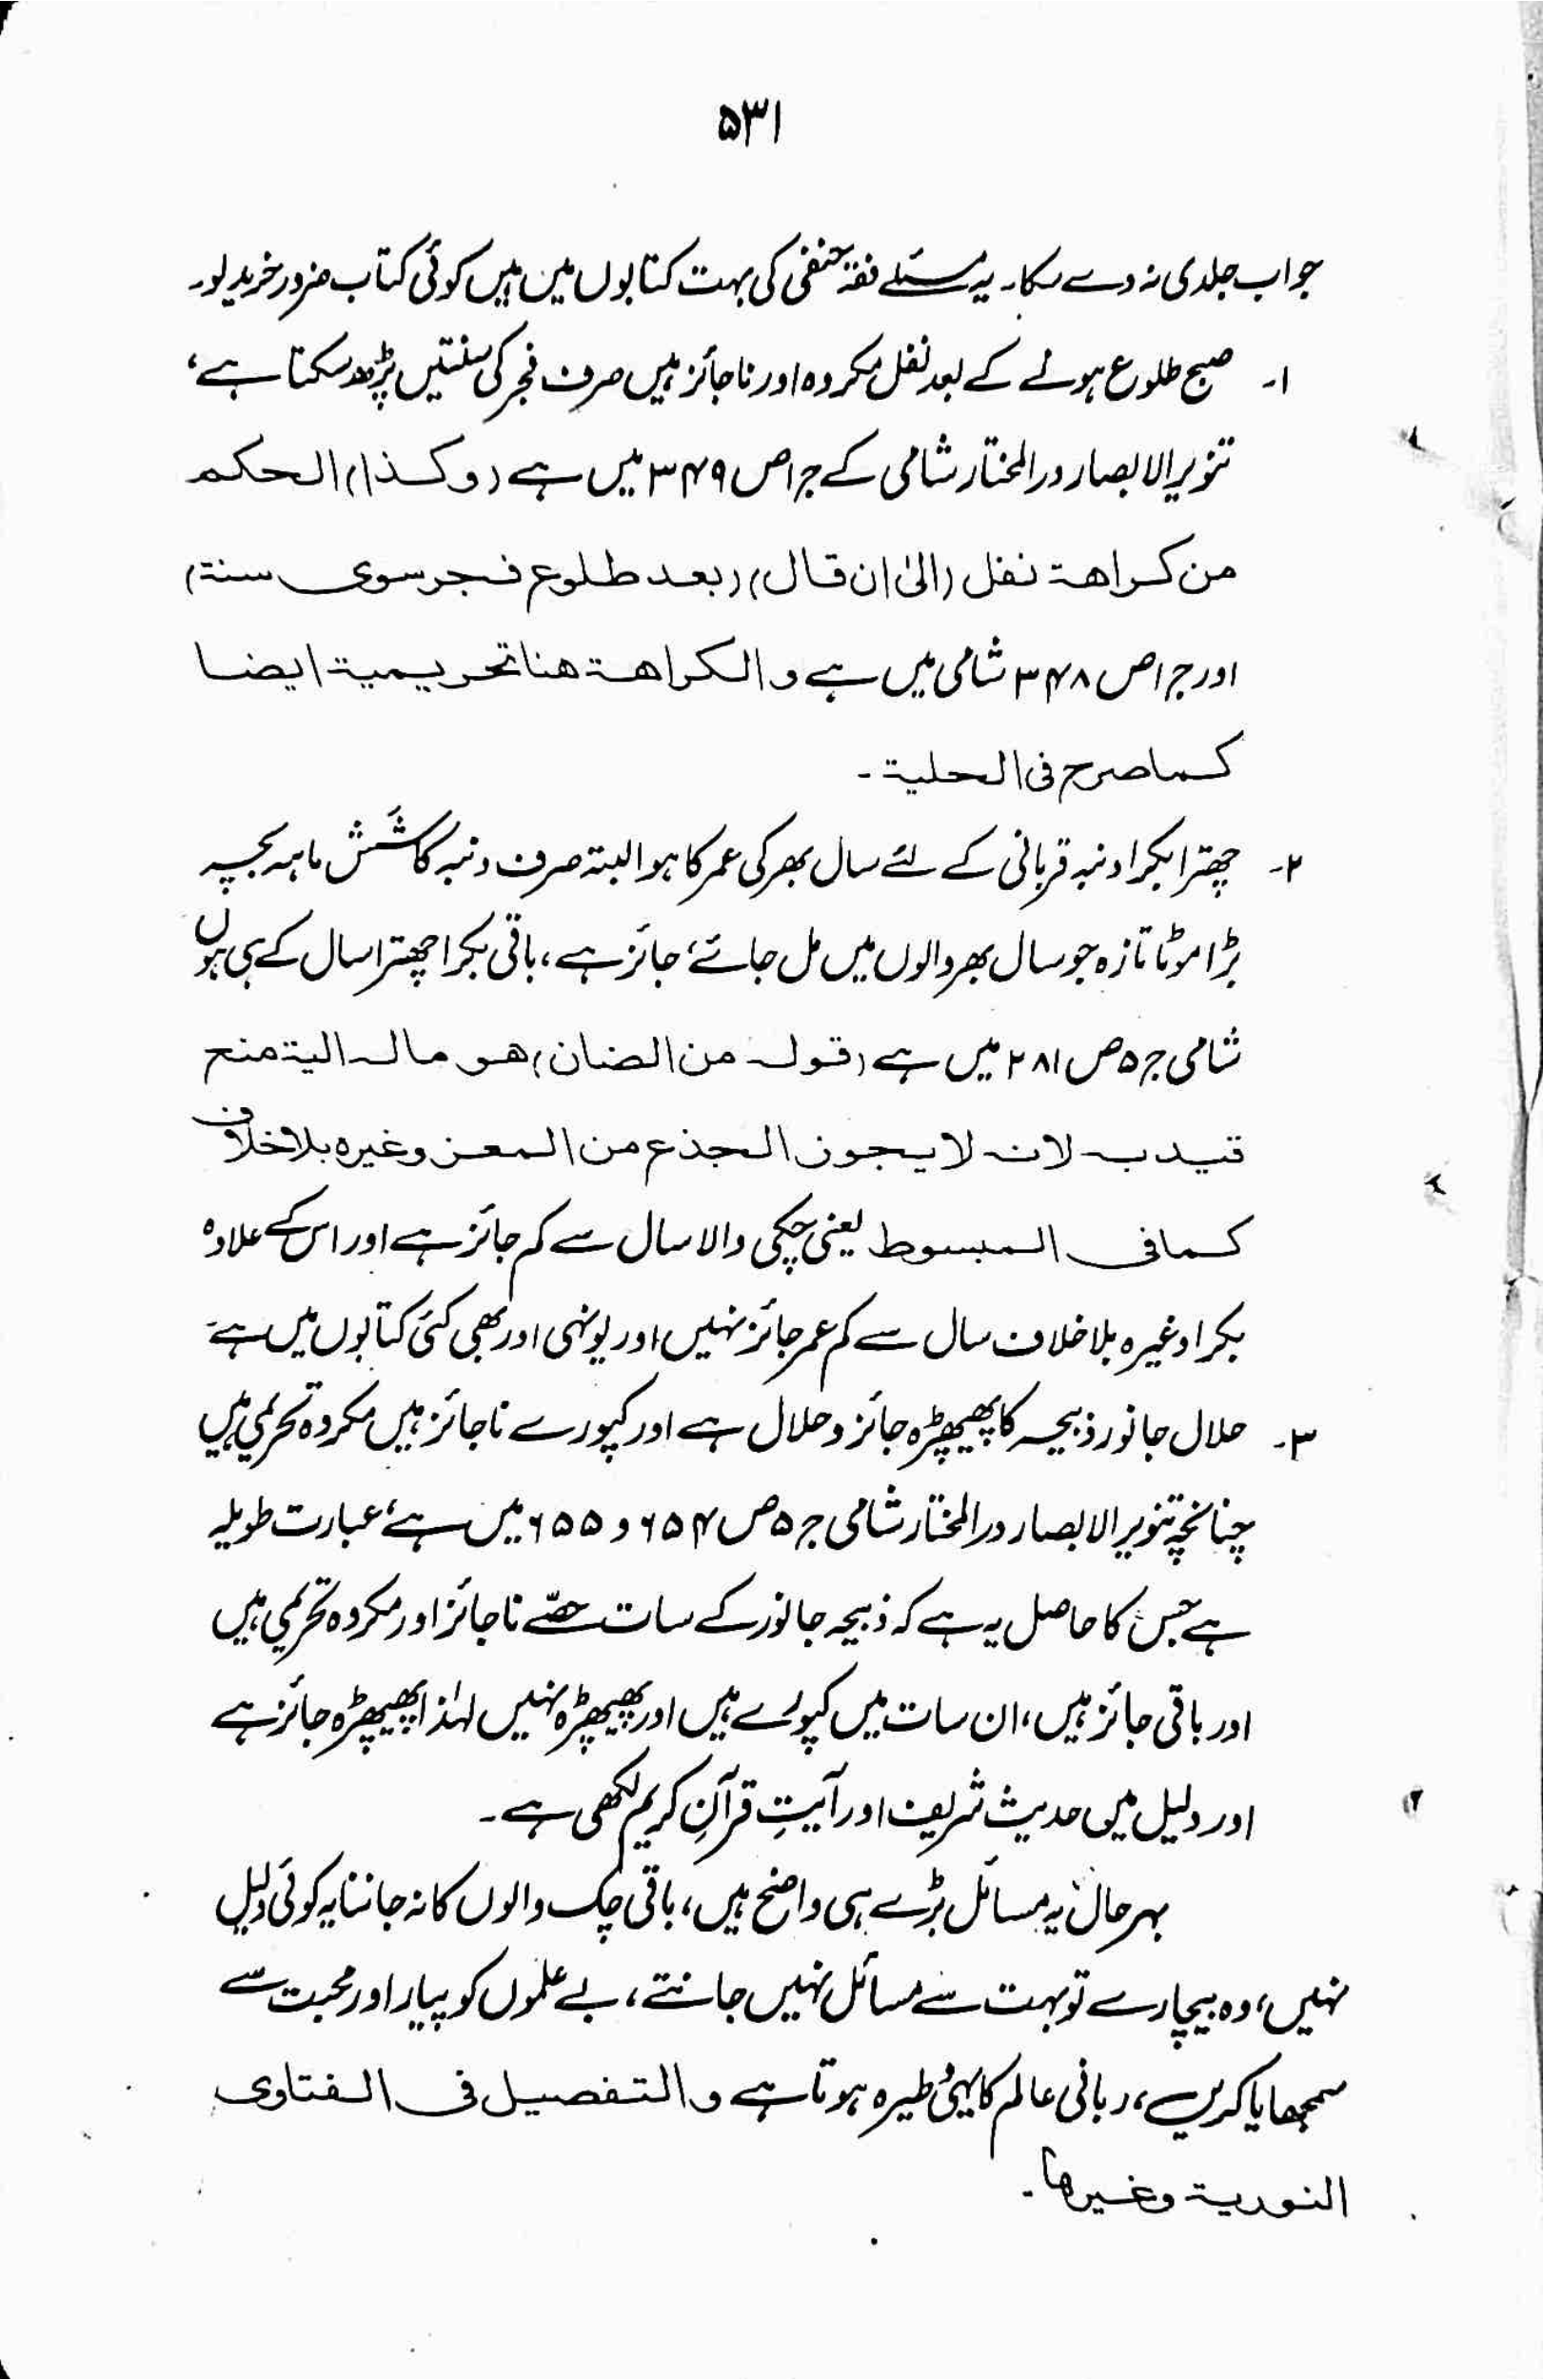 ۵۳۱
جواب جلدی نہ دے سکا۔ یہ مسئلے فقہ حنفی کی بہت کتابوں میں ہیں کوئی کتاب ضرور خرید لو۔
۱۔ صبح طلوع ہونے کے بعد نفل مکروہ اور ناجائز ہیں صرف فجر کی سنتیں پڑھ سکتا ہے،
تنویر الابصار در المختار شامی کے ج ۱ ص ۳۴۹ میں ہے (وکذا) الحکم
من کراھۃ نفل (الیٰ ان قال) (بعد طلوع فجر سوی سنۃ)
اور ج ۱ ص ۳۴۸ شامی میں ہے والکراھۃ ھنا تحریمیۃ ایضا
کما صرح فی الحلیۃ۔
۲۔ چھترا بکرا دنبہ قربانی کے لئے سال بھر کی عمر کا ہو البتہ صرف دنبہ کا شَش ماہہ بچہ
بڑا موٹا تازہ جو سال بھر والوں میں مل جائے، جائز ہے، باقی بکرا چھترا سال کے ہی ہوں
شامی ج ۵ ص ۲۸۱ میں ہے (قولہ من الضان) ھو مالہ الیۃ منح
قید بہ لانہ لا یجوز الجذع من المعز وغیرہ بلا خلاف
کما فی المبسوط یعنی چکی والا سال سے کم جائز ہے اور اس کے علاوہ
بکرا وغیرہ بلا خلاف سال سے کم عمر جائز نہیں اور یونہی اور بھی کئی کتابوں میں ہے۔
۳۔ حلال جانور ذبیحہ کا پھیپھڑہ جائز و حلال ہے اور کپورے ناجائز ہیں مکروہ تحریمی ہیں
چنانچہ تنویر الابصار در المختار شامی ج ۵ ص ۶۵۴ و ۶۵۵ میں ہے، عبارت طویلہ
ہے جس کا حاصل یہ ہے کہ ذبیحہ جانور کے سات حصّے ناجائز اور مکروہ تحریمی ہیں
اور باقی جائز ہیں، ان سات میں کپورے ہیں اور پھیپھڑہ نہیں لہٰذا پھیپھڑہ جائز ہے
اور دلیل میں حدیث شریف اور آیتِ قرآنِ کریم لکھی ہے۔
بہر حال یہ مسائل بڑے ہی واضح ہیں، باقی چک والوں کا نہ جاننا یہ کوئی دلیل
نہیں، وہ بیچارے تو بہت سے مسائل نہیں جانتے، بے علموں کو پیار اور محبت سے
سمجھایا کریں، ربانی عالم کا یہی وطیرہ ہوتا ہے والتفصیل فی الفتاوی
النوریۃ وغیرھا۔